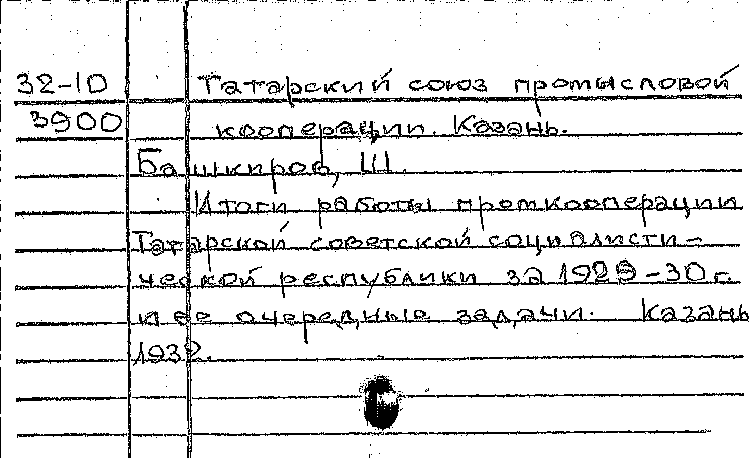 32-10 Татарский союз промысловой
3900 кооперации. Казань.
Башкиров, Ш.
Итоги работы промкооперации
Татарской советской социалисти-
ческой республики за 1929-30 г.
и ее очередные задачи. Казань
1932.